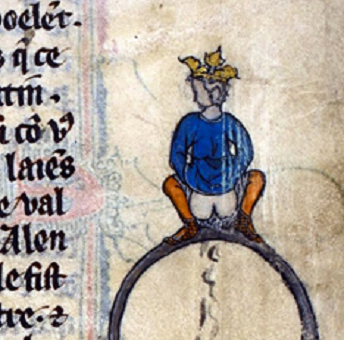 poelet.
s q̃ ce
ttm.
ui cō v9
laiēs
e val
Alen
le fist
tre. ⁊